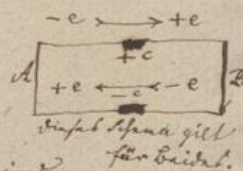 −e >——> +e
A +c B
+e <——< −e
−c
dieses Schema gilt
für Beides.